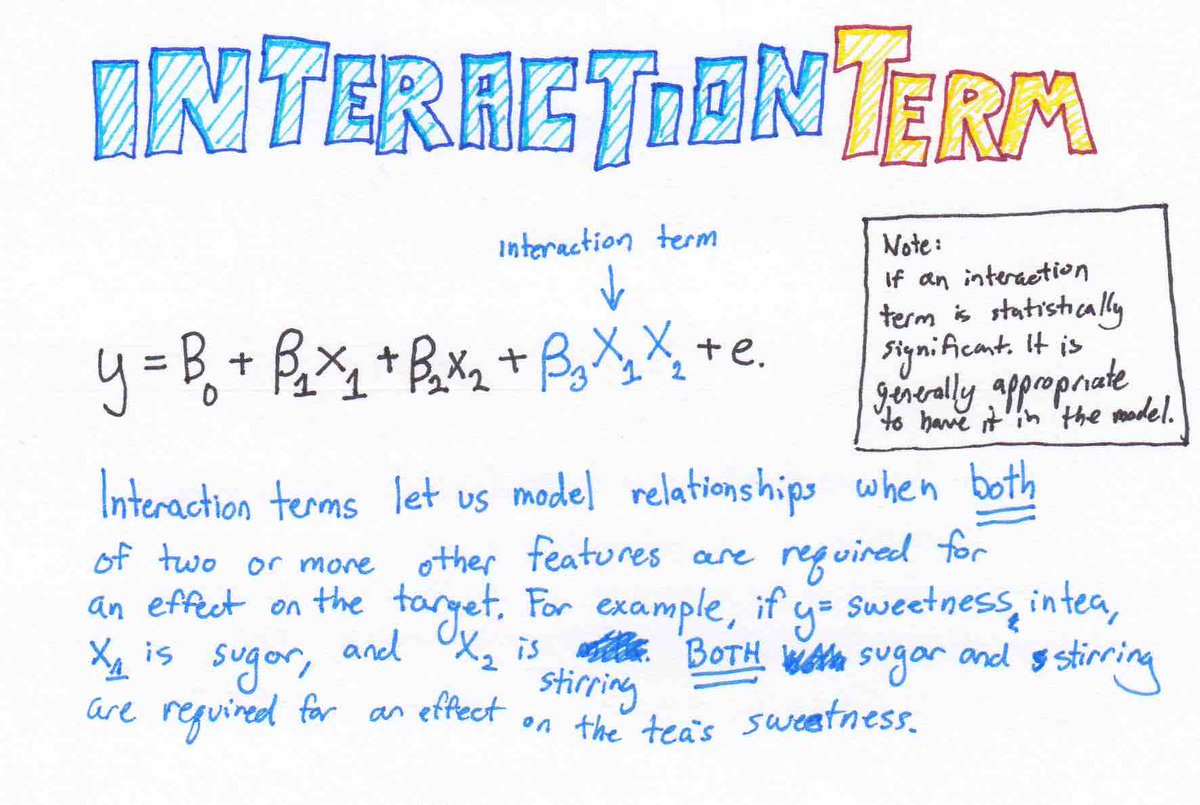 INTERACTION TERM
interaction term
y = B₀ + β₁X₁ + β₂X₂ + β₃X₁X₂ + e.
Note:
If an interaction
term is statistically
significant. It is
generally appropriate
to have it in the model.
Interaction terms let us model relationships when both
of two or more other features are required for
an effect on the target. For example, if y = sweetness in tea,
X₁ is sugar, and X₂ is stirring. BOTH sugar and stirring
are required for an effect on the tea's sweetness.